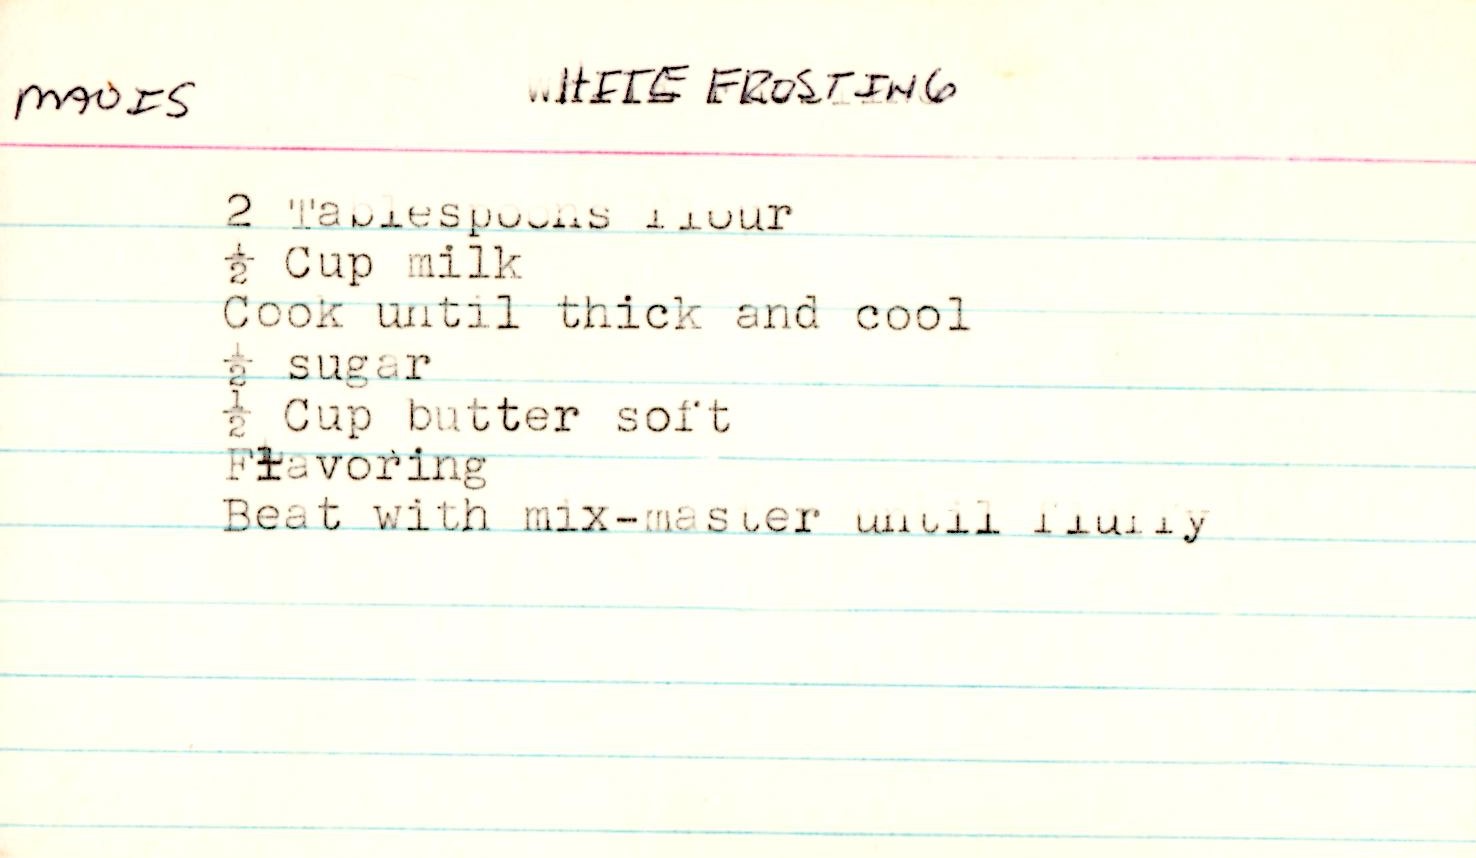 MAVIS
WHITE FROSTING
2 Tablespoons flour
½ Cup milk
Cook until thick and cool
½ sugar
½ Cup butter soft
Flavoring
Beat with mix-master until fluffy